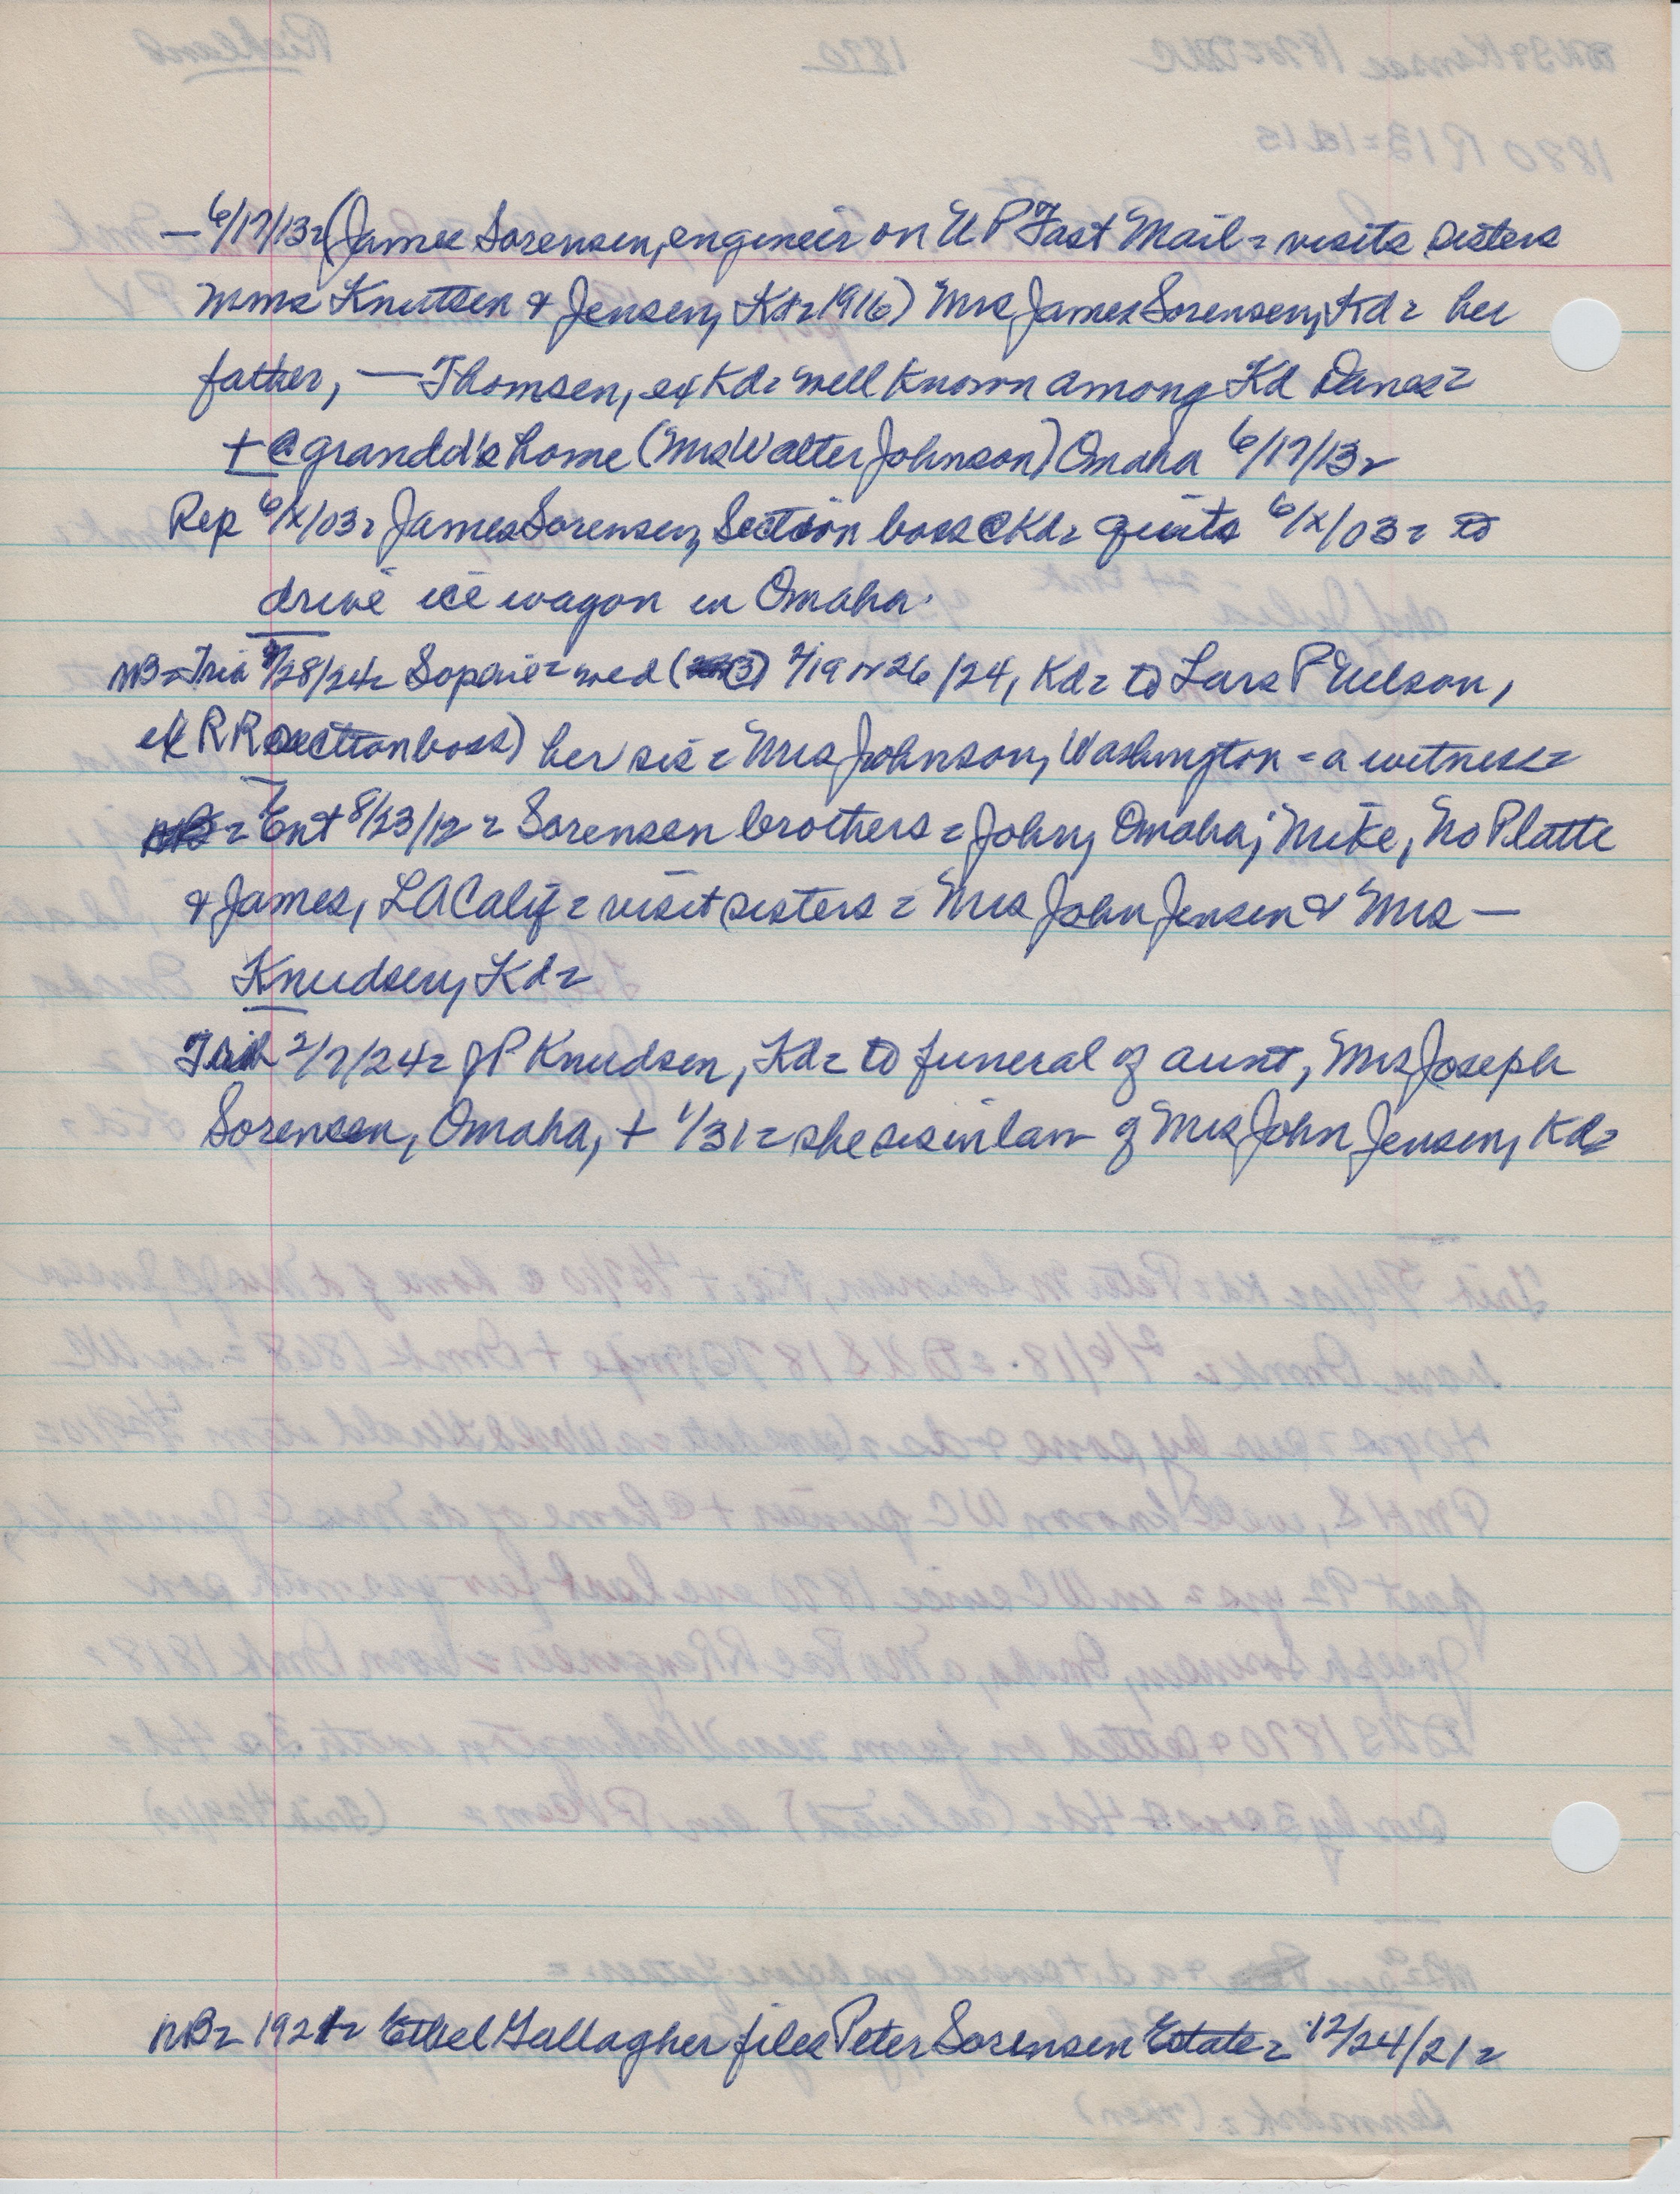 — 6/17/13 = (James Sorensen, engineer on U P Fast Mail = visits sisters
Mms Knutsen & Jensen, Kd = 1916) Mrs James Sorensen, Kd = her
father, — Thomsen, ex Kd = well known among Kd Danes =
+ @ grandd's home (Mrs Walter Johnson) Omaha 6/17/13 =
Rep 6/x/03 = James Sorensen, Section boss @ Kd = quits 6/x/03 = to
drive ice wagon in Omaha.
NB = Trib /28/24 = Sophie = wed /19 or 26/24, Kd = to Lars P Nelson,
ex RR section boss) her sis = Mrs Johnson, Washington = a witness =
= Ent 8/23/12 = Sorensen brothers = John, Omaha; Mike, No Platte
& James, LA Calif = visit sisters = Mrs John Jensen & Mrs —
Knudsen, Kd =
Trib 2/7/24 = J P Knudsen, Kd = to funeral of aunt, Mrs Joseph
Sorensen, Omaha, + 1/31 = she sis in law of Mrs John Jensen, Kd =
NB = 1921 = Ethel Gallagher files Peter Sorensen Estate = 12/24/21 =